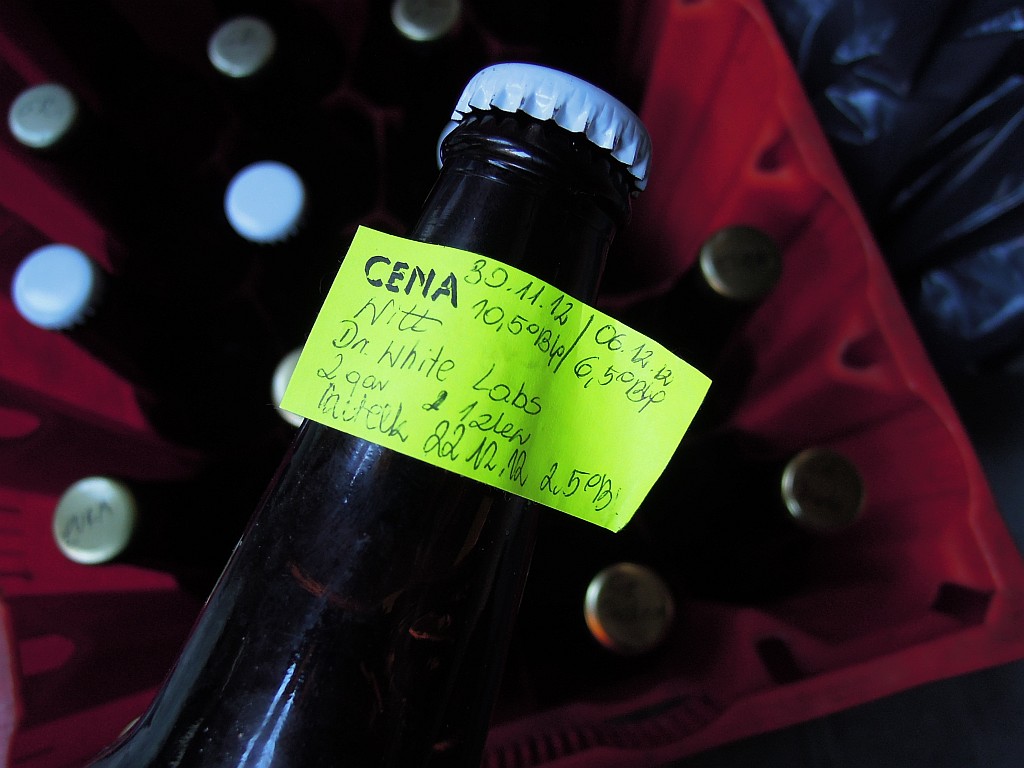 CENA 30.11.12 / 06.12.12
Witt 10,5°Blg / 6,5°Blg
Dr. White Labs
2 gar
22.12.12 2,5°B